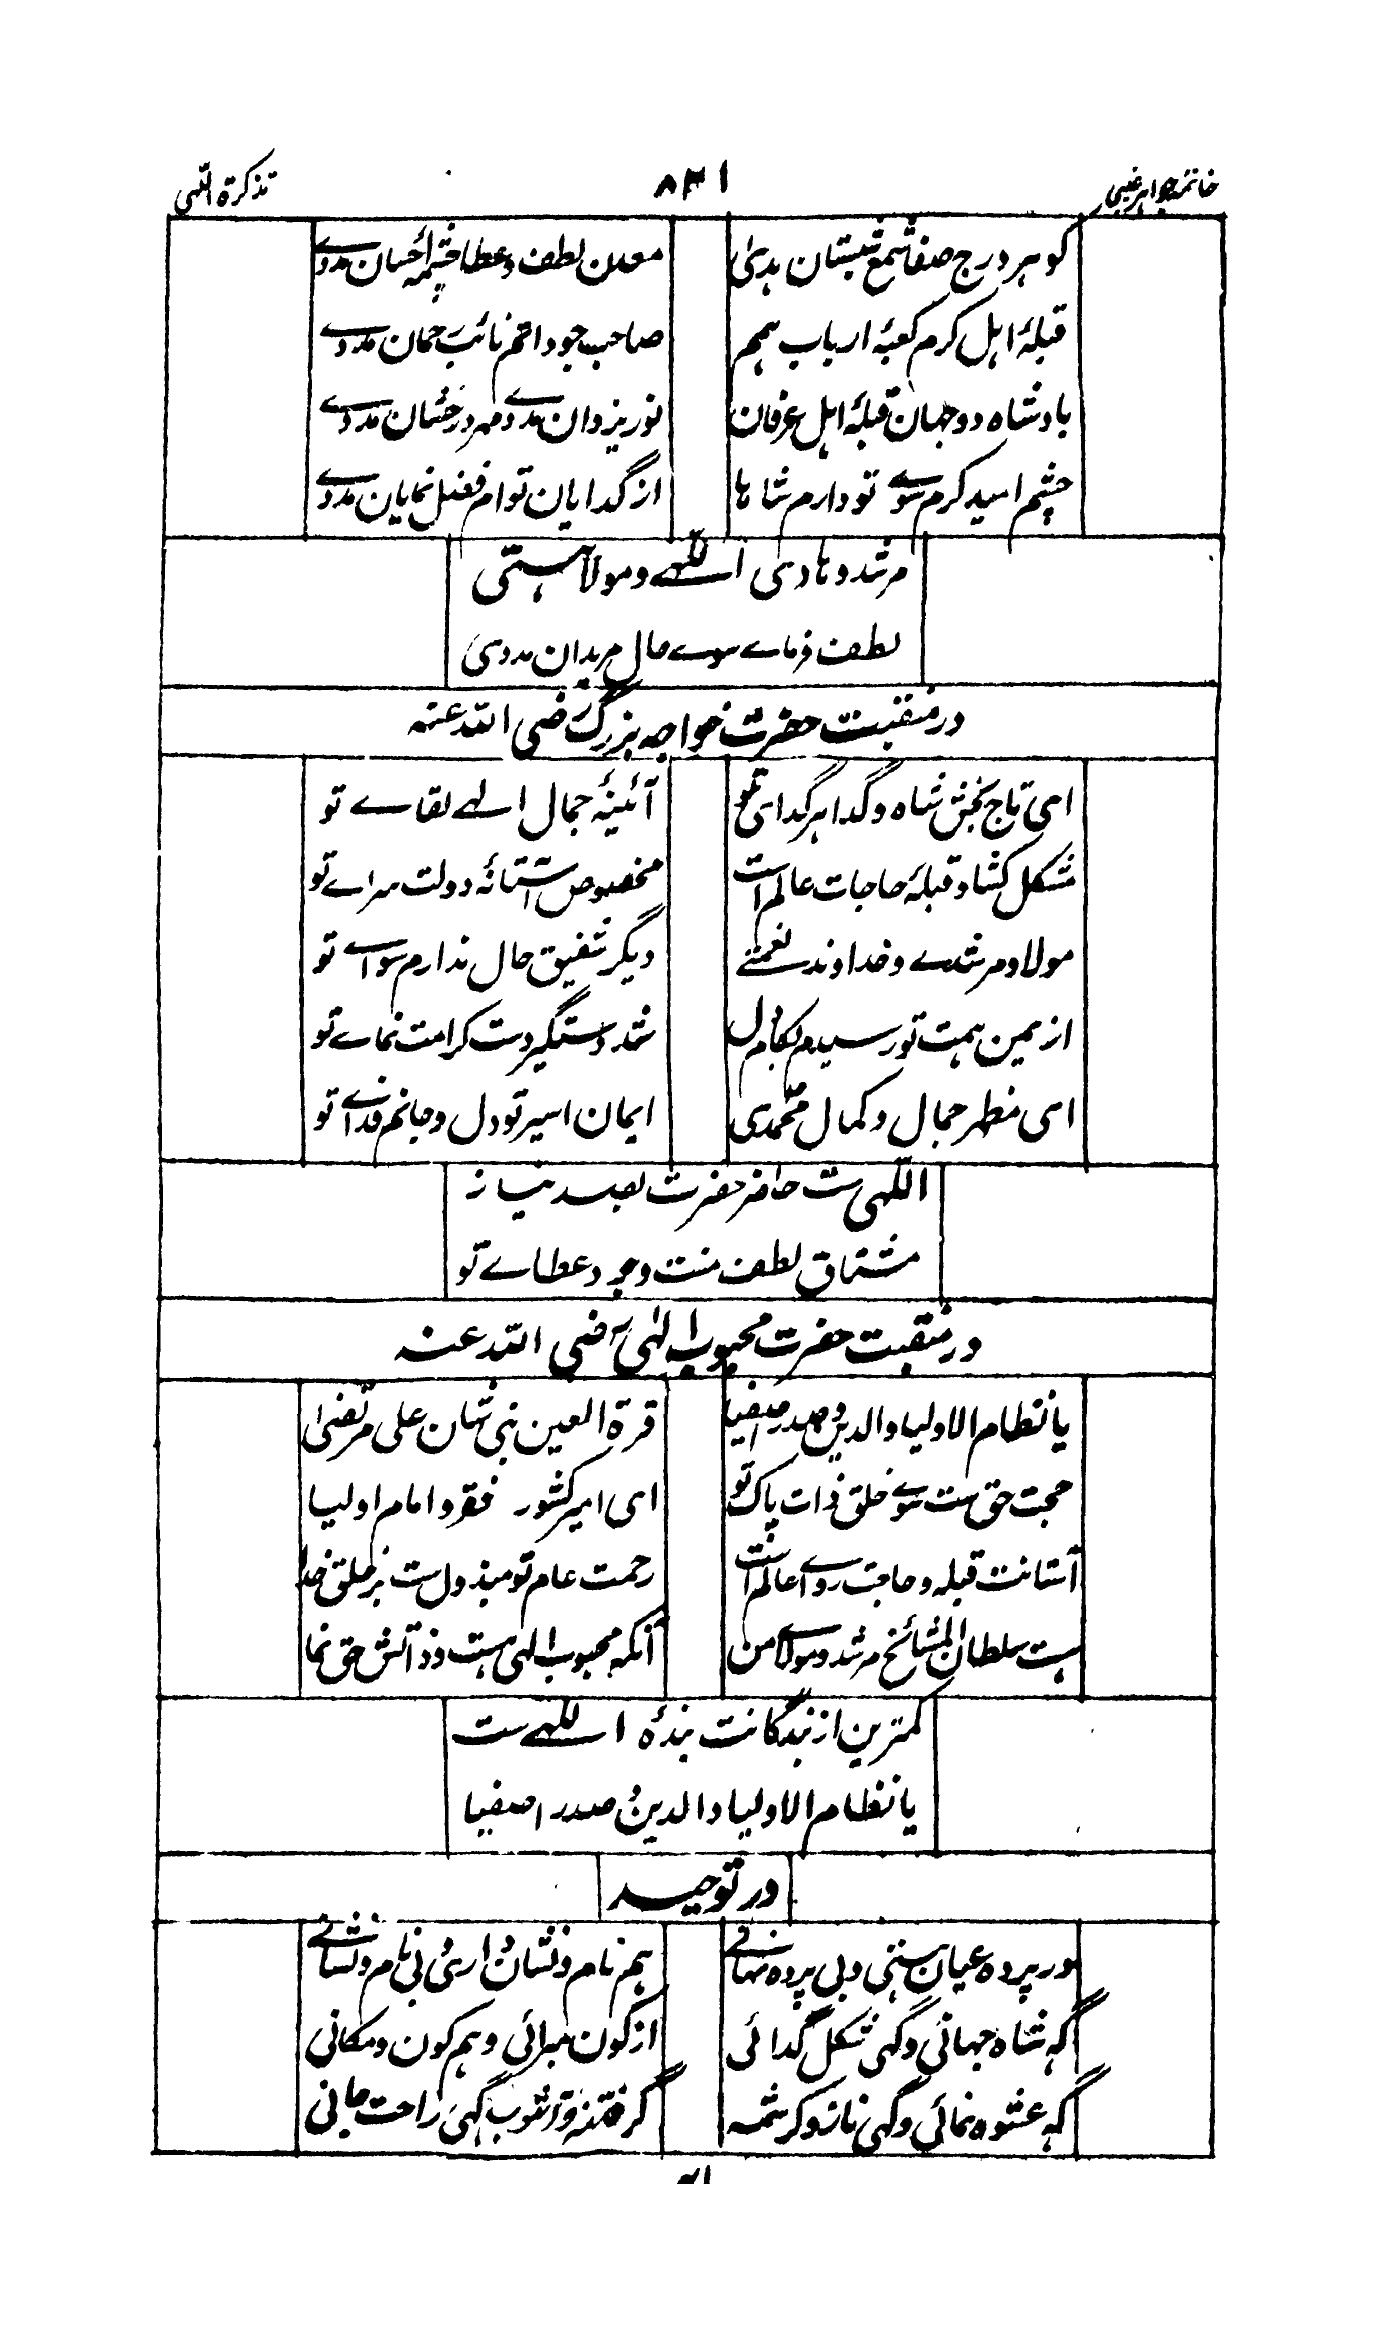 خاتمه جواہر غیبی ۸۳۱ تذکرۃ اللّہی
گوہر درج صفا شمع شبستان ہدیٰ معدن لطف و عطا چشمۂ احسان مددے
قبلۂ اہل کرم کعبۂ ارباب ہمم صاحب جود اتم نائب رحمان مددے
بادشاہ دو جہان قبلۂ اہل عرفان نور یزدان مددے مہر درخشان مددے
چشم امید کرم سوے تو دارم شاہا از گدایان توام فضل نمایان مددے
مرشد و ہادی اللّہے و مولا ہستی
لطف فرماے سوے حال مریدان مددی
در منقبت حضرت خواجہ بزرگ رضی اللہ عنہ
ای تاج بخش شاہ و گدا ہر گدای تو آئینۂ جمال الہی لقاے تو
مشکل کشا و قبلۂ حاجات عالم است مخصوص آستانۂ دولت سراے تو
مولا و مرشدے و خداوند نعمتے دیگر شفیق حال ندارم سواے تو
از یمن ہمت تو رسیدم بکام دل شد دستگیر دست کرامت نماے تو
ای مظہر جمال و کمال محمدی ایمان اسیر تو دل و جانم فداے تو
اللّہی ست حاضر حضرت بصد نیاز
مشتاق لطف منت وجود عطاے تو
در منقبت حضرت محبوب الہی رضی اللہ عنہ
یا نظام الاولیا والدین صدر اصفیا قرۃ العین نبی شان علی مرتضیٰ
حجت حق ست سوے خلق ذات پاک تو ای امیر کشور فقر و امام اولیا
آستانت قبلہ و حاجت رواے عالم است رحمت عام تو مبذول ست بر خلق خدا
ہست سلطان المشائخ مرشد و مولاے من آنکہ محبوب الہی ہست و ذاتش حق نما
کمترین از بندگانت بندۂ اللّہے ست
یا نظام الاولیا والدین صدر اصفیا
در توحید
در پردہ عیان ہستی و بی پردہ نہانے ہم نام و نشان داری و بی نام و نشانے
گہ شاہ جہانی و گہی شکل گدائی از کون مبرائی و ہم کون و مکانی
گہ عشوہ نمائی و گہی ناز و کرشمہ گہ فتنہ و آشوب گہی راحت جانی